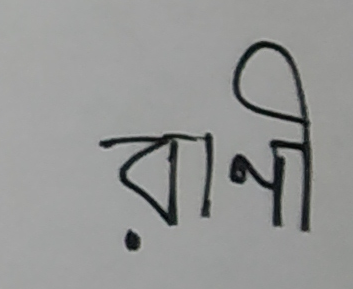 রানী